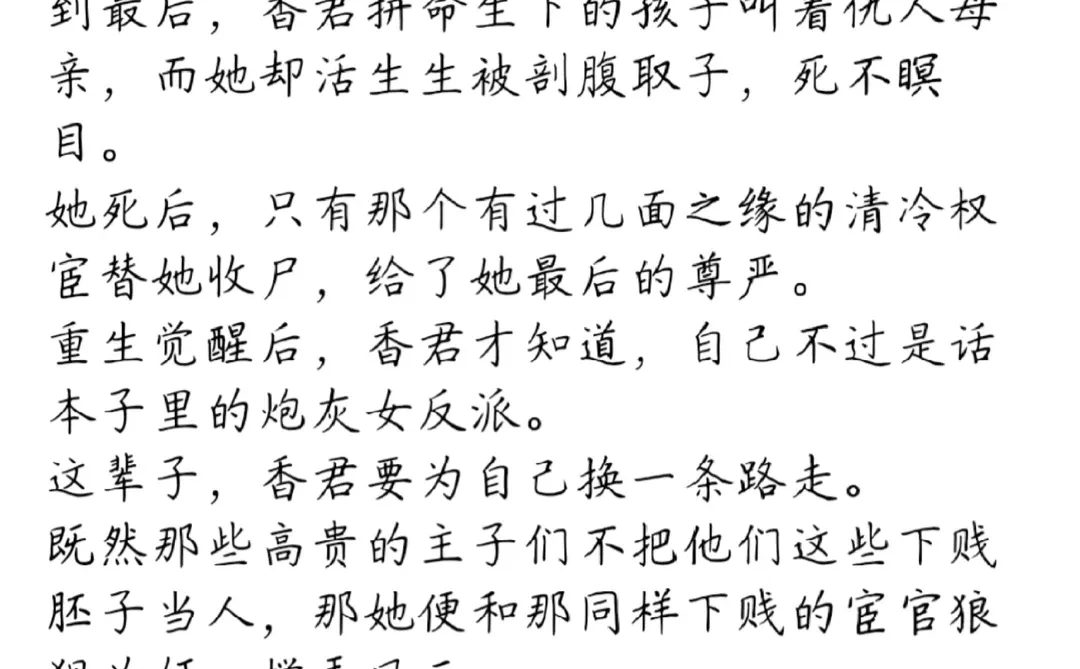 到最后，香君拼命生下的孩子叫着仇人母
亲，而她却活生生被剖腹取子，死不瞑
目。
她死后，只有那个有过几面之缘的清冷权
宦替她收尸，给了她最后的尊严。
重生觉醒后，香君才知道，自己不过是话
本子里的炮灰女反派。
这辈子，香君要为自己换一条路走。
既然那些高贵的主子们不把他们这些下贱
胚子当人，那她便和那同样下贱的宦官狼